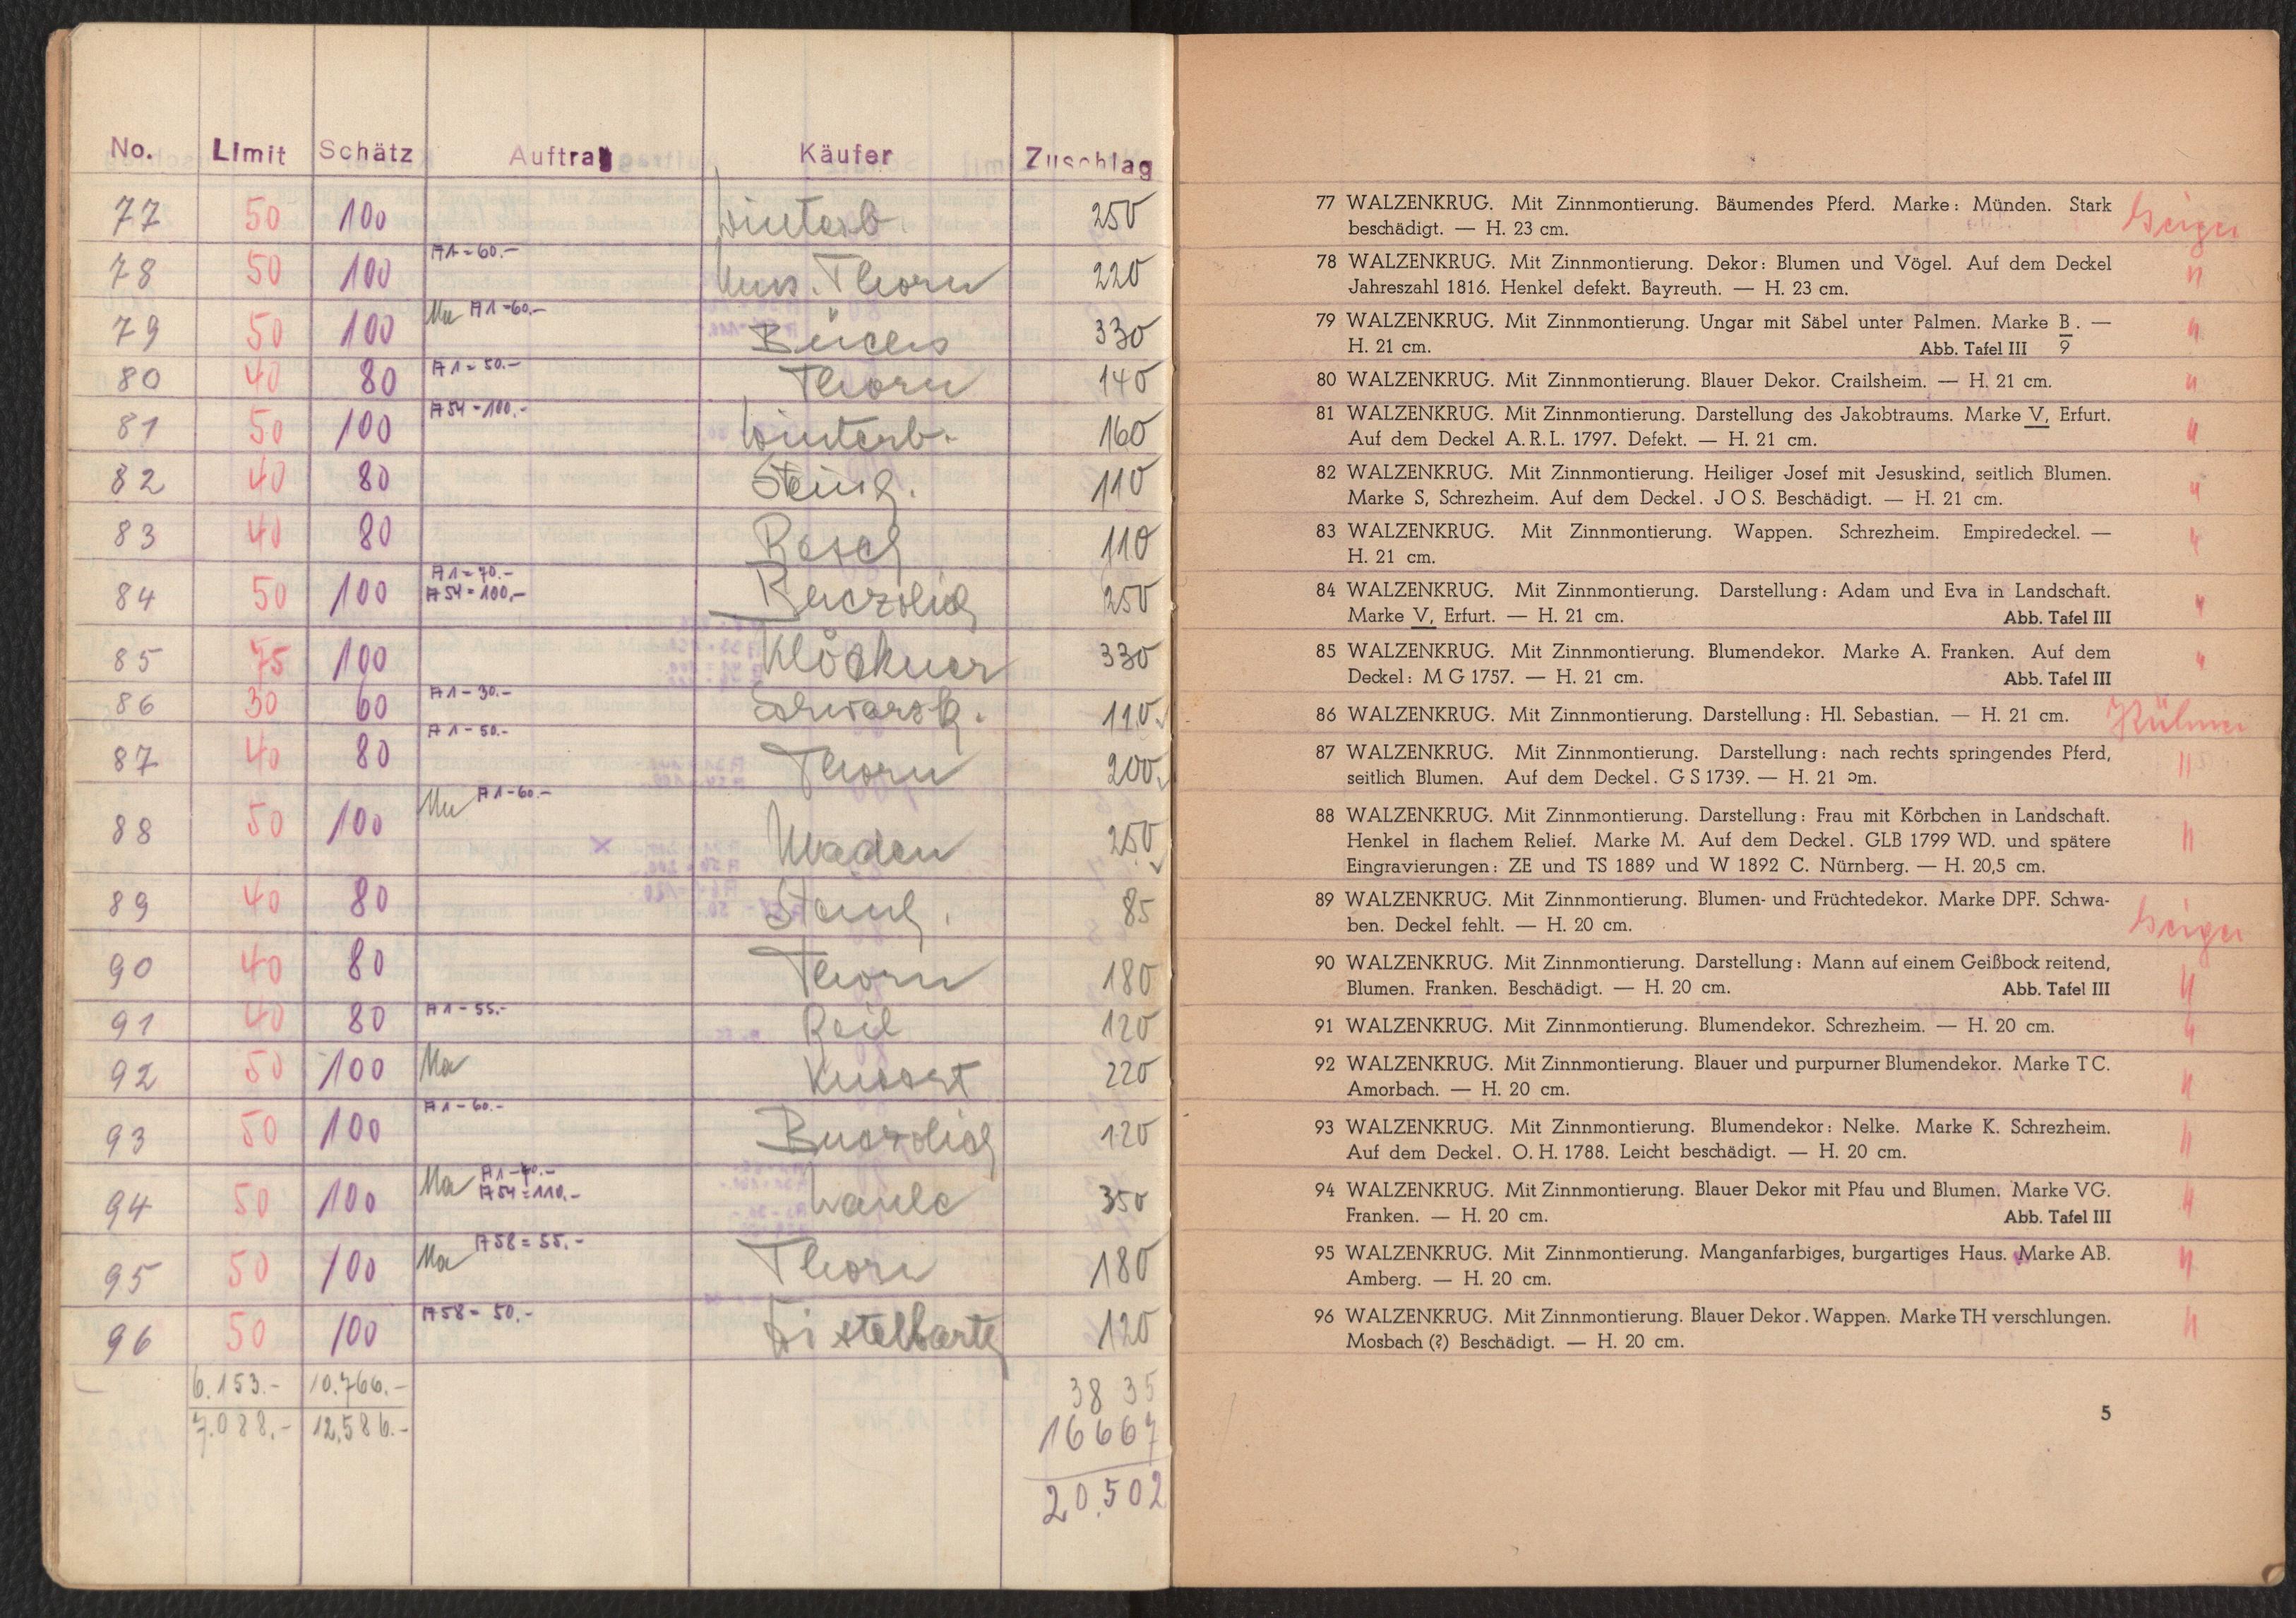 No. Limit Schätz Auftrag Käufer Zuschlag
77 50 100 Winterb. 250
78 50 100 A1=60.- Mus. Thorn 220
79 50 100 A1=60.- 330
80 40 80 A1=50.- Thorn 140
81 50 100 A54=100.- Winterb. 160
82 40 80 110
83 40 80 Resch 110
84 50 100 A1=70.- A54=100.- 250
85 75 100 Klöckner 330
86 30 60 A1-30.- 110
87 40 80 A1-50.- Thorn 200
88 50 100 A1-60.- Maden 250
89 40 80 85
90 40 80 Thorn 180
91 40 80 A1-55.- Reil 120
92 50 100 Ma 220
93 50 100 A1-60.- 120
94 50 100 Ma A1-70.- A54=110.- 350
95 50 100 Ma A58=55.- Thorn 180
96 50 100 A58=50.- Distelbarth 120
6.153.- 10.766.- 3835
7.088.- 12.586.- 16667
20.502
77 WALZENKRUG. Mit Zinnmontierung. Bäumendes Pferd. Marke: Münden. Stark Geiger
beschädigt. — H. 23 cm.
78 WALZENKRUG. Mit Zinnmontierung. Dekor: Blumen und Vögel. Auf dem Deckel "
Jahreszahl 1816. Henkel defekt. Bayreuth. — H. 23 cm.
79 WALZENKRUG. Mit Zinnmontierung. Ungar mit Säbel unter Palmen. Marke B. — "
H. 21 cm. Abb. Tafel III 9
80 WALZENKRUG. Mit Zinnmontierung. Blauer Dekor. Crailsheim. — H. 21 cm. "
81 WALZENKRUG. Mit Zinnmontierung. Darstellung des Jakobtraums. Marke V, Erfurt. "
Auf dem Deckel A.R.L. 1797. Defekt. — H. 21 cm.
82 WALZENKRUG. Mit Zinnmontierung. Heiliger Josef mit Jesuskind, seitlich Blumen. "
Marke S, Schrezheim. Auf dem Deckel. J O S. Beschädigt. — H. 21 cm.
83 WALZENKRUG. Mit Zinnmontierung. Wappen. Schrezheim. Empiredeckel. — "
H. 21 cm.
84 WALZENKRUG. Mit Zinnmontierung. Darstellung: Adam und Eva in Landschaft. "
Marke V, Erfurt. — H. 21 cm. Abb. Tafel III
85 WALZENKRUG. Mit Zinnmontierung. Blumendekor. Marke A. Franken. Auf dem "
Deckel: M G 1757. — H. 21 cm. Abb. Tafel III
86 WALZENKRUG. Mit Zinnmontierung. Darstellung: Hl. Sebastian. — H. 21 cm.
87 WALZENKRUG. Mit Zinnmontierung. Darstellung: nach rechts springendes Pferd, "
seitlich Blumen. Auf dem Deckel. G S 1739. — H. 21 cm.
88 WALZENKRUG. Mit Zinnmontierung. Darstellung: Frau mit Körbchen in Landschaft. "
Henkel in flachem Relief. Marke M. Auf dem Deckel. GLB 1799 WD. und spätere
Eingravierungen: ZE und TS 1889 und W 1892 C. Nürnberg. — H. 20,5 cm.
89 WALZENKRUG. Mit Zinnmontierung. Blumen- und Früchtedekor. Marke DPF. Schwa- Geiger
ben. Deckel fehlt. — H. 20 cm.
90 WALZENKRUG. Mit Zinnmontierung. Darstellung: Mann auf einem Geißbock reitend, "
Blumen. Franken. Beschädigt. — H. 20 cm. Abb. Tafel III
91 WALZENKRUG. Mit Zinnmontierung. Blumendekor. Schrezheim. — H. 20 cm. "
92 WALZENKRUG. Mit Zinnmontierung. Blauer und purpurner Blumendekor. Marke T C. "
Amorbach. — H. 20 cm.
93 WALZENKRUG. Mit Zinnmontierung. Blumendekor: Nelke. Marke K. Schrezheim. "
Auf dem Deckel. O. H. 1788. Leicht beschädigt. — H. 20 cm.
94 WALZENKRUG. Mit Zinnmontierung. Blauer Dekor mit Pfau und Blumen. Marke VG. "
Franken. — H. 20 cm. Abb. Tafel III
95 WALZENKRUG. Mit Zinnmontierung. Manganfarbiges, burgartiges Haus. Marke AB. "
Amberg. — H. 20 cm.
96 WALZENKRUG. Mit Zinnmontierung. Blauer Dekor. Wappen. Marke TH verschlungen. "
Mosbach (?) Beschädigt. — H. 20 cm.
5